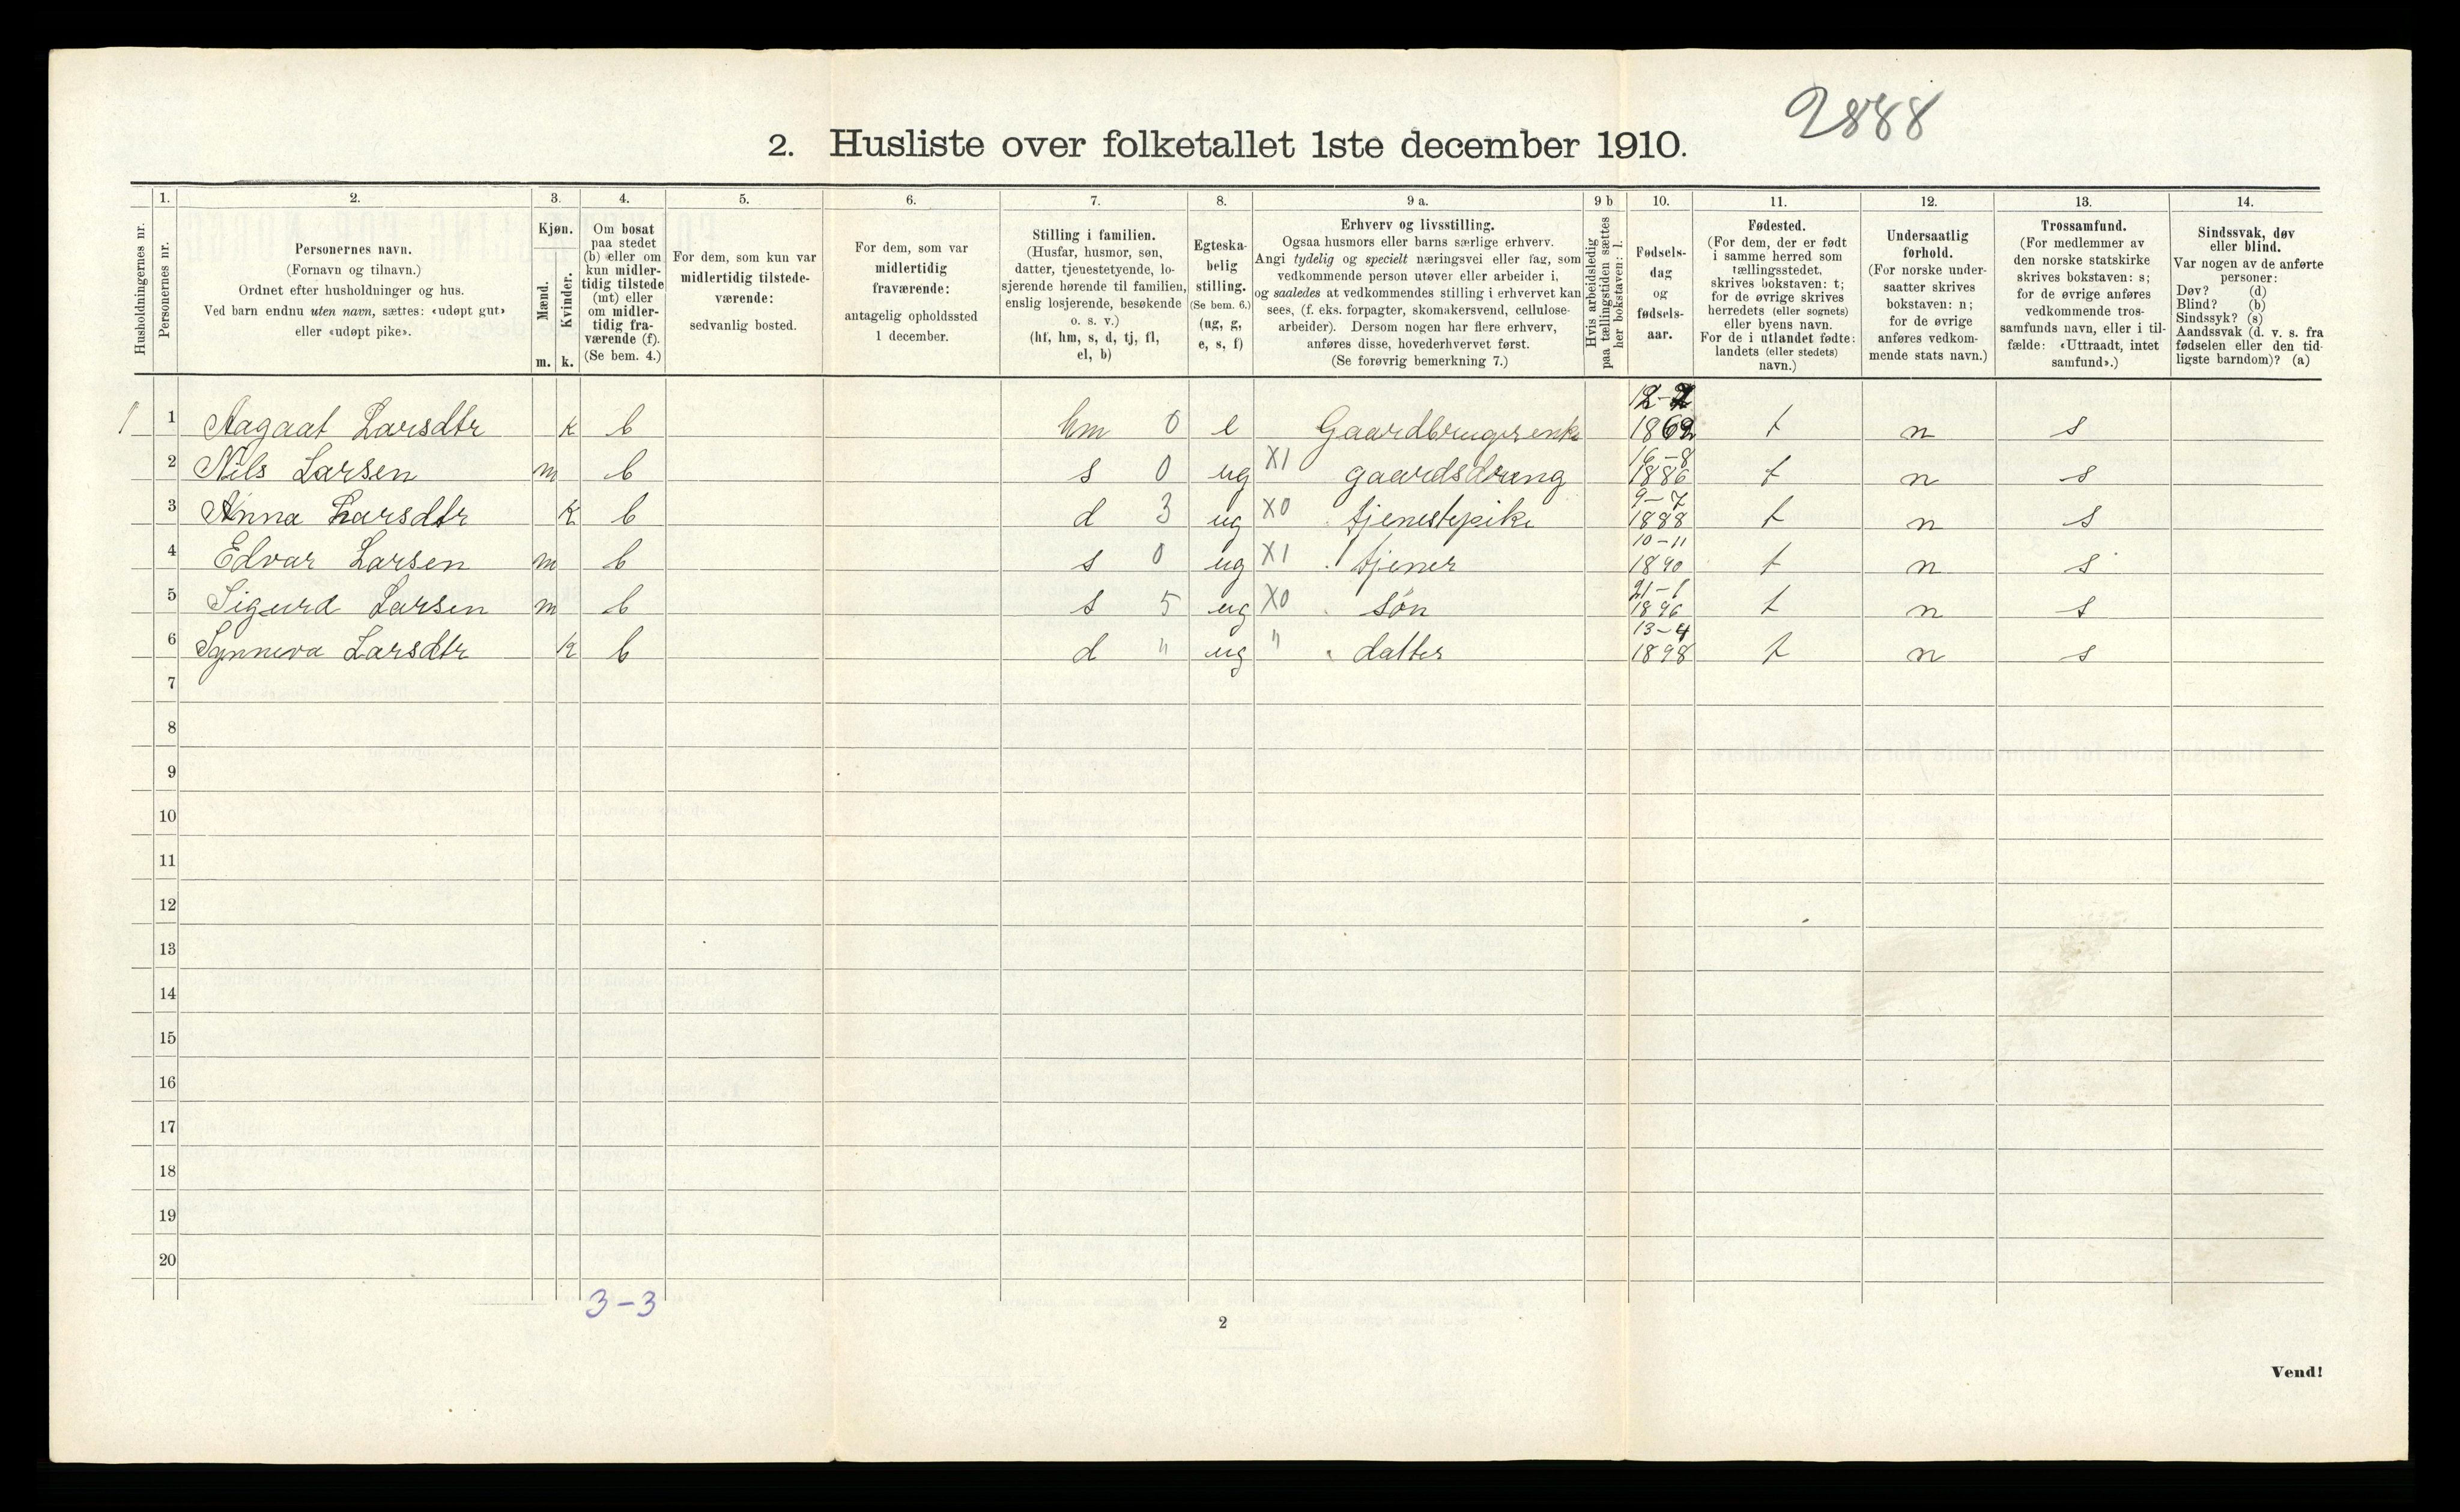 2888
2. Husliste over folketallet 1ste december 1910.
Husholdningernes nr.
1.
Personernes nr.
2.
Personernes navn.
(Fornavn og tilnavn.)
Ordnet efter husholdninger og hus.
Ved barn endnu uten navn, sættes: «udøpt gut»
eller «udøpt pike».
3.
Kjøn.
Mænd.
Kvinder.
m. k.
4.
Om bosat
paa stedet
(b) eller om
kun midler-
tidig tilstede
(mt) eller
om midler-
tidig fra-
værende (f).
(Se bem. 4.)
5.
For dem, som kun var
midlertidig tilstede-
værende:
sedvanlig bosted.
6.
For dem, som var
midlertidig
fraværende:
antagelig opholdssted
1 december.
7.
Stilling i familien.
(Husfar, husmor, søn,
datter, tjenestetyende, lo-
sjerende hørende til familien,
enslig losjerende, besøkende
o. s. v.)
(hf, hm, s, d, tj, fl,
el, b)
8.
Egteska-
belig
stilling.
(Se bem. 6.)
(ug, g,
e, s, f)
9 a.
Erhverv og livsstilling.
Ogsaa husmors eller barns særlige erhverv.
Angi tydelig og specielt næringsvei eller fag, som
vedkommende person utøver eller arbeider i,
og saaledes at vedkommendes stilling i erhvervet kan
sees, (f. eks. forpagter, skomakersvend, cellulose-
arbeider). Dersom nogen har flere erhverv,
anføres disse, hovederhvervet først.
(Se forøvrig bemerkning 7.)
9 b
Hvis arbeidsledig
paa tællingstiden sættes
her bokstaven: l.
10.
Fødsels-
dag
og
fødsels-
aar.
11.
Fødested.
(For dem, der er født
i samme herred som
tællingsstedet,
skrives bokstaven: t;
for de øvrige skrives
herredets (eller sognets)
eller byens navn.
For de i utlandet fødte:
landets (eller stedets)
navn.)
12.
Undersaatlig
forhold.
(For norske under-
saatter skrives
bokstaven: n;
for de øvrige
anføres vedkom-
mende stats navn.)
13.
Trossamfund.
(For medlemmer av
den norske statskirke
skrives bokstaven: s;
for de øvrige anføres
vedkommende tros-
samfunds navn, eller i til-
fælde: «Uttraadt, intet
samfund».)
14.
Sindssvak, døv
eller blind.
Var nogen av de anførte
personer:
Døv? (d)
Blind? (b)
Sindssyk? (s)
Aandssvak (d. v. s. fra
fødselen eller den tid-
ligste barndom)? (a)
1 1 Aagaat Larsdtr k b hm 0 e Gaardbrugerenke 12-2 1862 t n s
2 Nils Larsen m b s 0 ug X1 gaardsdrang 16-8 1886 t n s
3 Anna Larsdtr k b d 3 ug X0 tjenestepike 9-7 1888 t n s
4 Edvar Larsen m b s 0 ug X1 tjener 10-11 1890 t n s
5 Sigurd Larsen m b s 5 ug X0 søn 21-1 1896 t n s
6 Synneva Larsdtr k b d " ug " datter 13-4 1898 t n s
7
8
9
10
11
12
13
14
15
16
17
18
19
20
3-3
2
Vend!